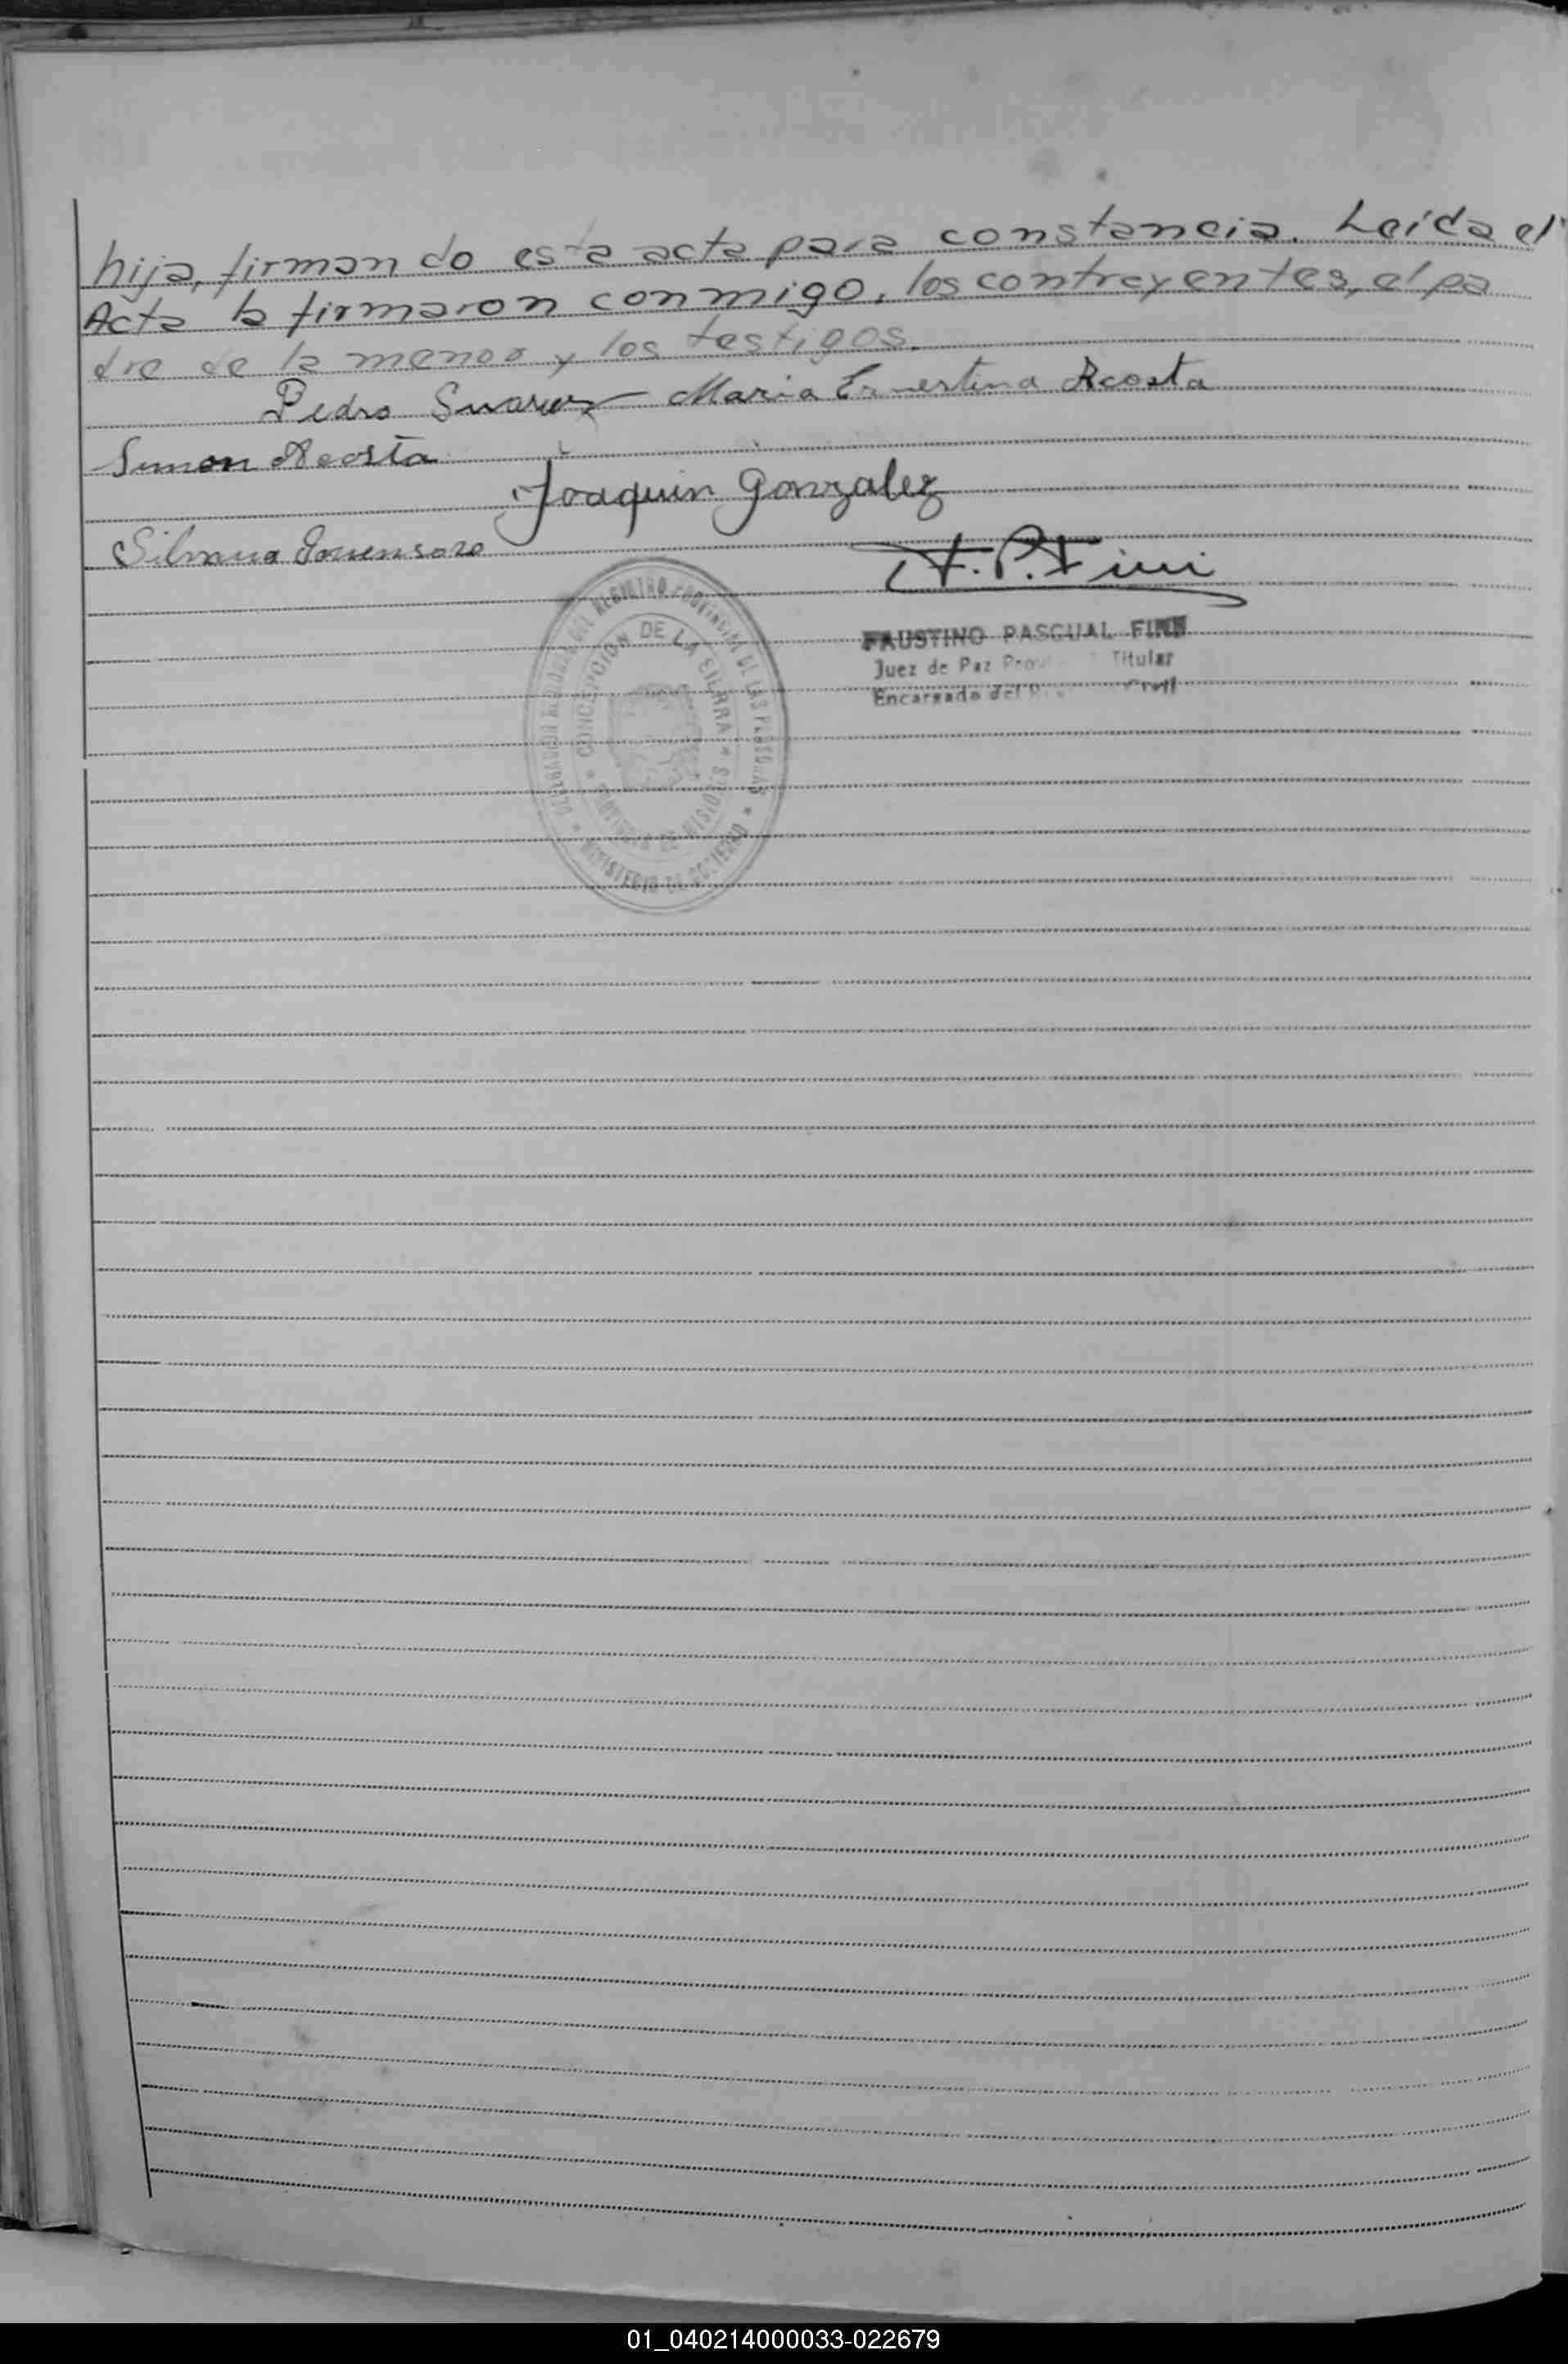 hija, firman do esta acta para constancia. Leída el
Acta la firmaron conmigo, los contrayentes, el pa
dre de la menor y los testigos.
Pedro Suarez Maria Ernestina Acosta
Simon Acosta
Joaquin Gonzalez
F. P. Fini
FAUSTINO PASCUAL FINI
Juez de Paz Titular
Encargado del Civil
DEL REGISTRO PROVINCIAL DE LAS PERSONAS * MINISTERIO DE GOBIERNO *
CONCEPCION DE LA SIERRA * PROVINCIA DE MISIONES *
01_040214000033-022679